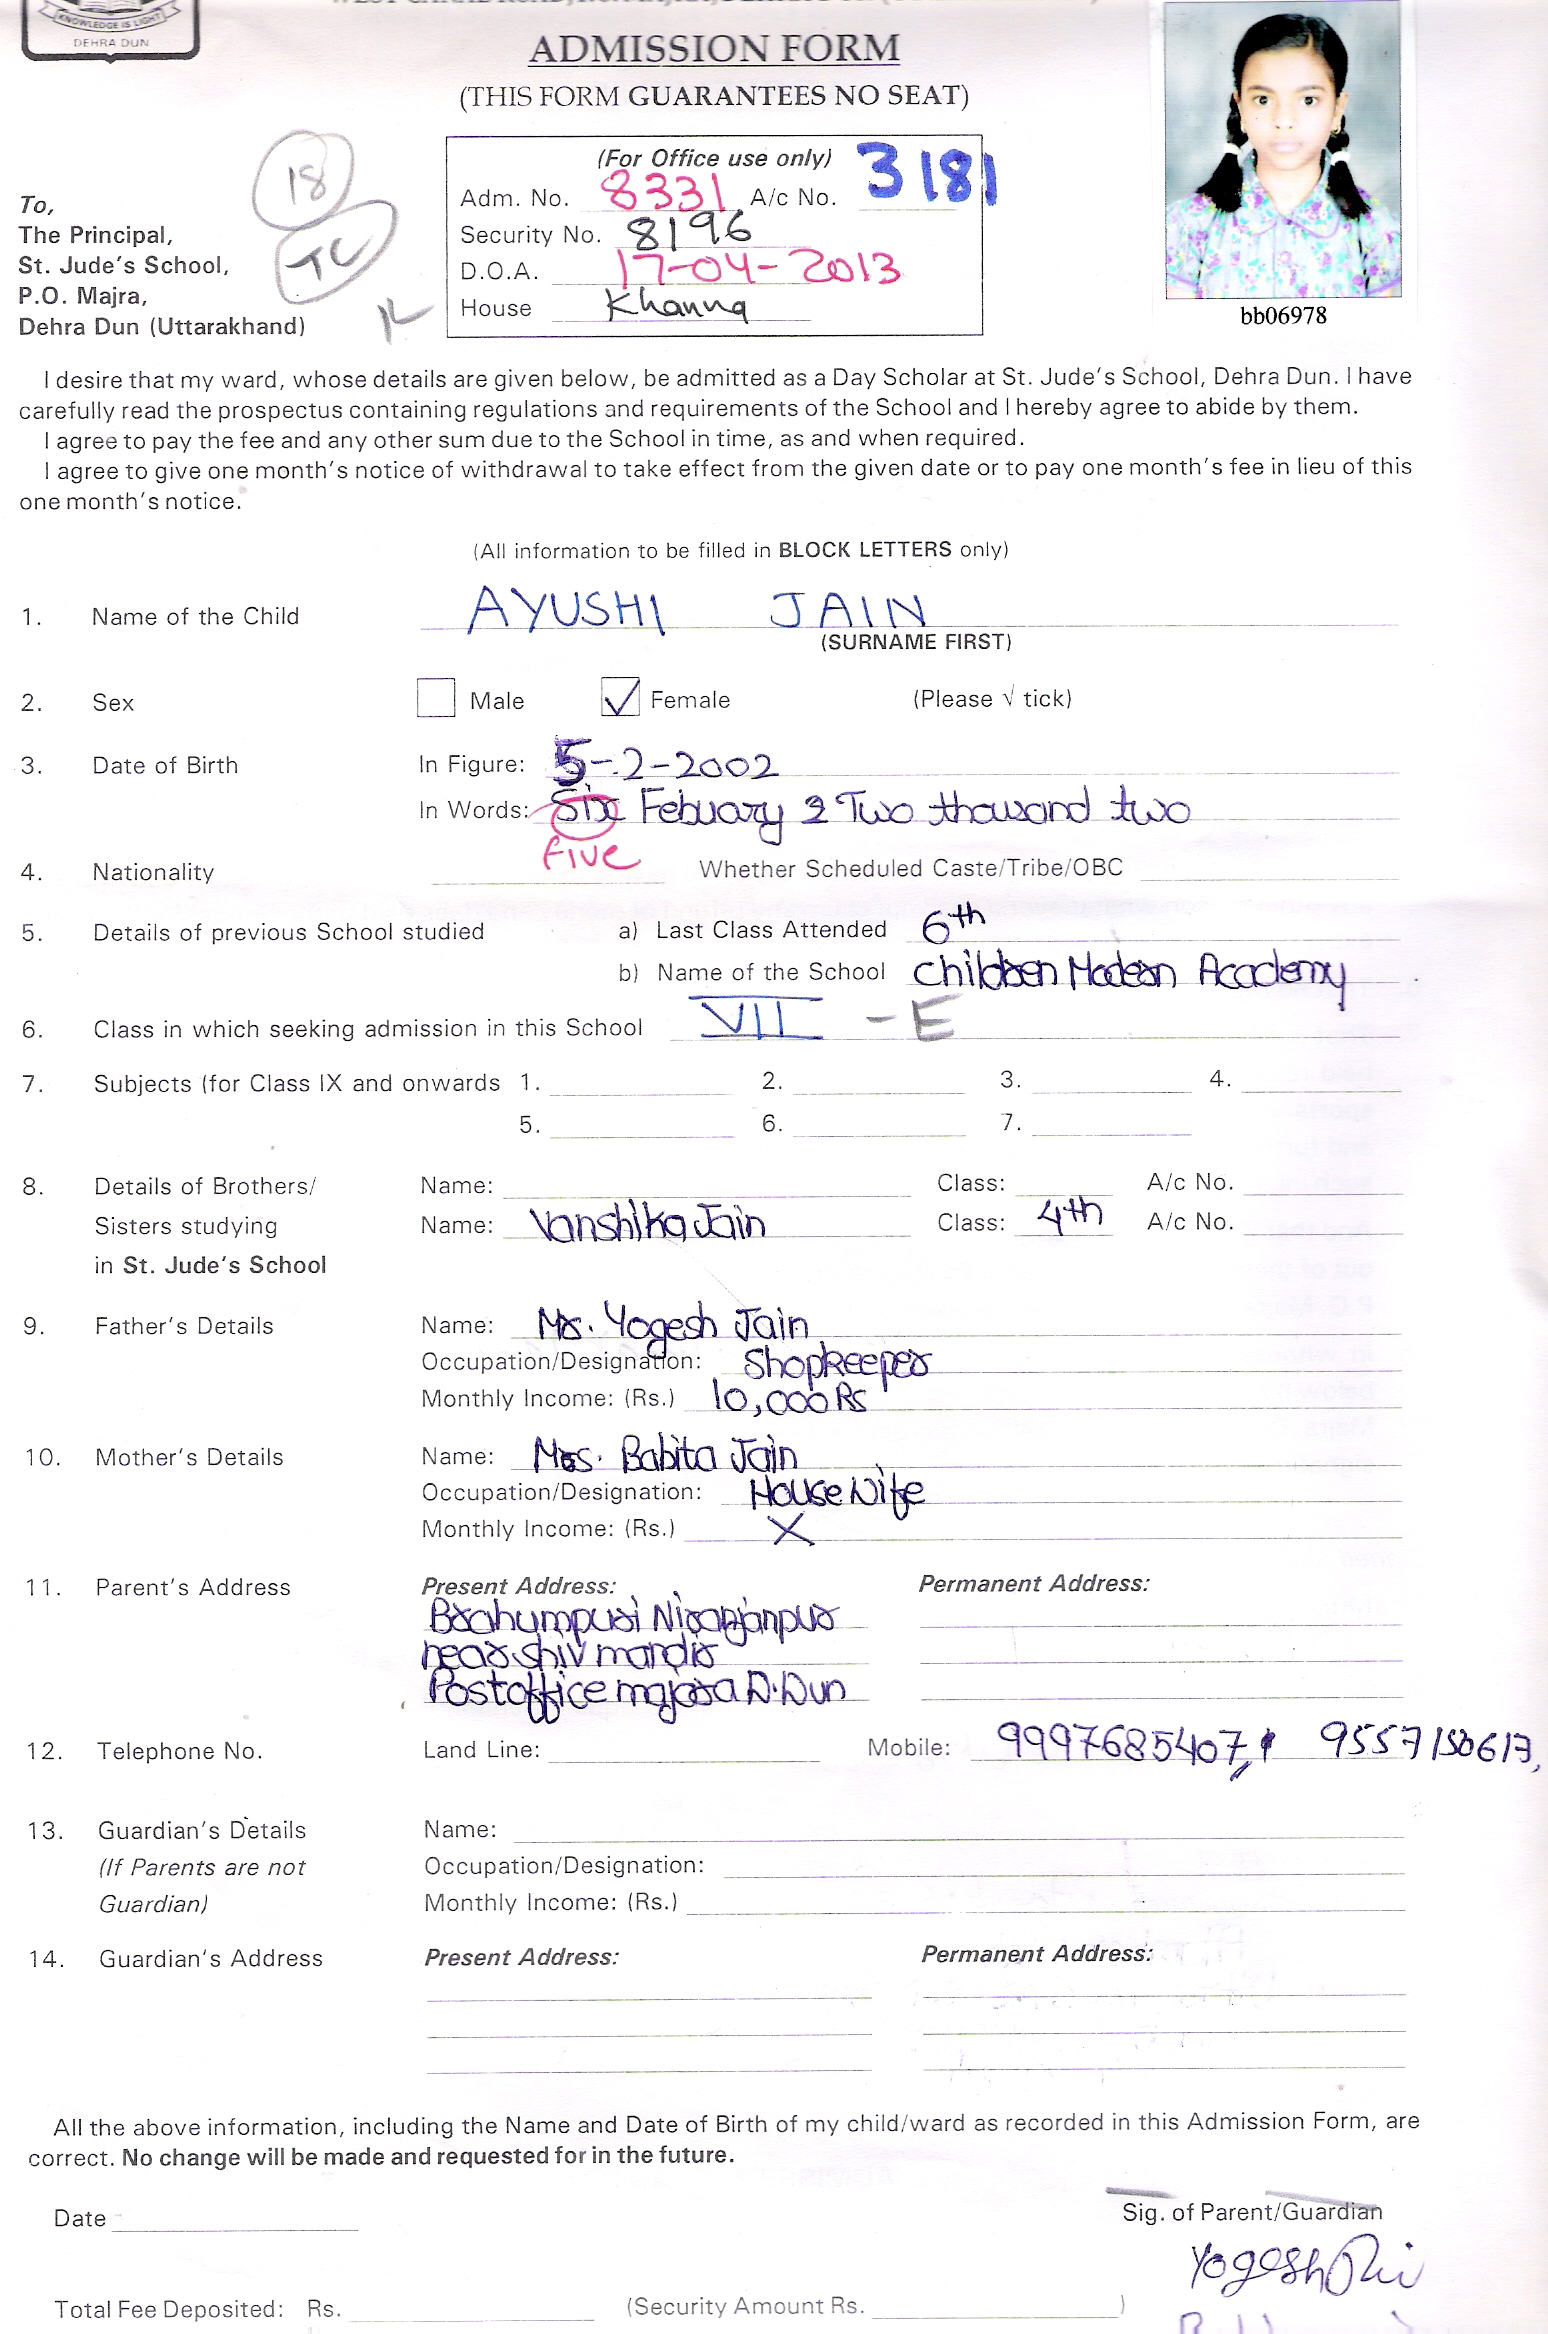 KNOWLEDGE IS LIGHT
DEHRA DUN
ADMISSION FORM
(THIS FORM GUARANTEES NO SEAT)
18
TC
(For Office use only)
Adm. No. 8331 A/c No. 3181
Security No. 8196
D.O.A. 17-04-2013
House Khanna
bb06978
To,
The Principal,
St. Jude's School,
P.O. Majra,
Dehra Dun (Uttarakhand)
I desire that my ward, whose details are given below, be admitted as a Day Scholar at St. Jude's School, Dehra Dun. I have
carefully read the prospectus containing regulations and requirements of the School and I hereby agree to abide by them.
I agree to pay the fee and any other sum due to the School in time, as and when required.
I agree to give one month's notice of withdrawal to take effect from the given date or to pay one month's fee in lieu of this
one month's notice.
(All information to be filled in BLOCK LETTERS only)
1. Name of the Child AYUSHI JAIN
(SURNAME FIRST)
2. Sex Male ✓ Female (Please √ tick)
3. Date of Birth In Figure: 5-2-2002
In Words: Six Febuary 2 Two thousand two
five
4. Nationality Whether Scheduled Caste/Tribe/OBC
5. Details of previous School studied a) Last Class Attended 6th
b) Name of the School Children Modern Academy
6. Class in which seeking admission in this School VII - E
7. Subjects (for Class IX and onwards 1. 2. 3. 4.
5. 6. 7.
8. Details of Brothers/ Name: Class: A/c No.
Sisters studying Name: Vanshika Jain Class: 4th A/c No.
in St. Jude's School
9. Father's Details Name: Mr. Yogesh Jain
Occupation/Designation: Shopkeeper
Monthly Income: (Rs.) 10,000 Rs
10. Mother's Details Name: Mrs. Babita Jain
Occupation/Designation: House Wife
Monthly Income: (Rs.) X
11. Parent's Address Present Address: Permanent Address:
Brahumpuri Niranjanpur
near shiv mandir
Post office majara D.Dun
12. Telephone No. Land Line: Mobile: 9997685407, 9557150613,
13. Guardian's Details Name:
(If Parents are not Occupation/Designation:
Guardian) Monthly Income: (Rs.)
14. Guardian's Address Present Address: Permanent Address:
All the above information, including the Name and Date of Birth of my child/ward as recorded in this Admission Form, are
correct. No change will be made and requested for in the future.
Date Sig. of Parent/Guardian
Yogesh
Total Fee Deposited: Rs. (Security Amount Rs. )